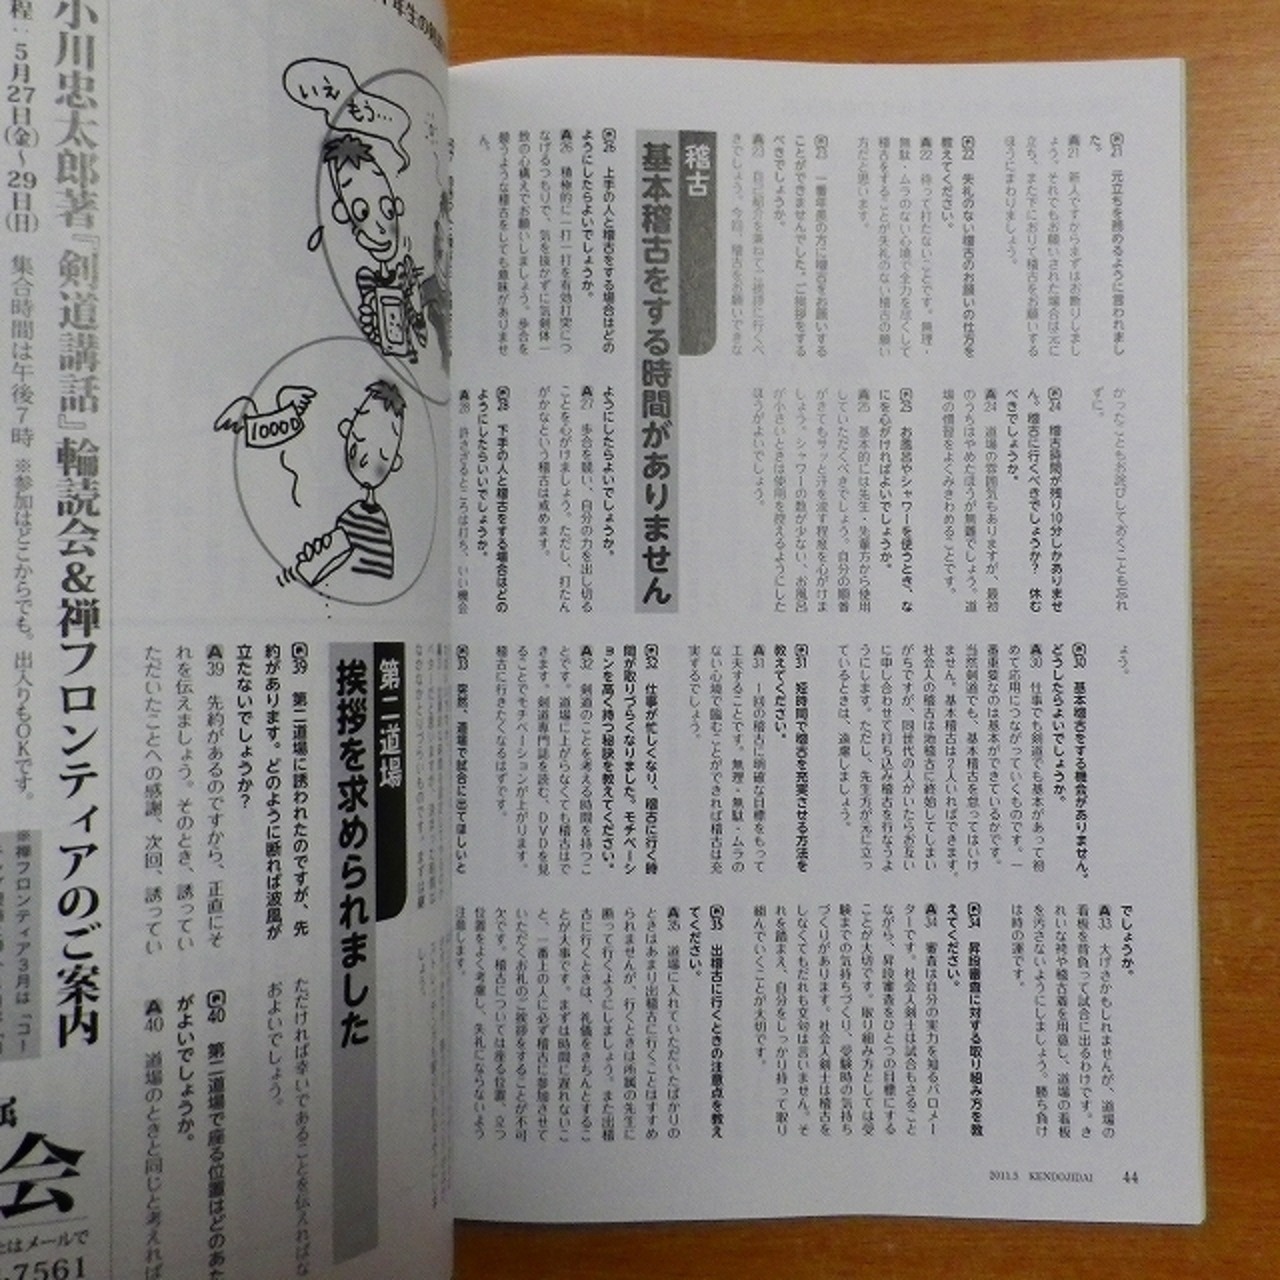 Q21 元立ちを務めるように言われまし
た。
A21 新人ですからまずはお断りしまし
ょう。それでもお願いされた場合は元に
立ち、また下におりて稽古をお願いする
ほうにまわりましょう。
Q22 失礼のない稽古のお願いの仕方を
教えてください。
A22 待って打たないことです。無理・
無駄・ムラのない心境で全力を尽くして
稽古をすることが失礼のない稽古の願い
方だと思います。
Q23 一番年長の方に稽古をお願いする
ことができませんでした。ご挨拶をする
べきでしょうか。
A23 自己紹介を兼ねてご挨拶に行くべ
きでしょう。今回、稽古をお願いできな
かったこともお詫びしておくことも忘れ
ずに。
Q24 稽古時間が残り10分しかありませ
ん。稽古に行くべきでしょうか? 休む
べきでしょうか。
A24 道場の雰囲気もありますが、最初
のうちはやめたほうが無難でしょう。道
場の慣習をよくみきわめることです。
Q25 お風呂やシャワーを使うとき、な
にを心がければよいでしょうか。
A25 基本的には先生・先輩方から使用
していただくべきでしょう。自分の順番
がきてもサッと汗を流す程度を心がけま
しょう。シャワーの数が少ない、お風呂
が小さいときは使用を控えるようにした
ほうがよいでしょう。
稽古
基本稽古をする時間がありません
Q26 上手の人と稽古をする場合はどの
ようにしたらよいでしょうか。
A26 積極的に一打一打を有効打突につ
なげるつもりで、気を抜かずに気剣体一
致の心構えでお願いしましょう。歩合を
競うような稽古をしても意味がありませ
ん。
ようにしたらよいでしょうか。
A27 歩合を競い、自分の力を出し切る
ことを心がけましょう。ただし、打たん
がかなという稽古は戒めます。
Q28 下手の人と稽古をする場合はどの
ようにしたらいいでしょうか。
A28 許さざるところは打ち、いい機会
ょう。
Q30 基本稽古をする機会がありません。
どうしたらよいでしょうか。
A30 仕事でも剣道でも基本があって初
めて応用につながっていくものです。一
番重要なのは基本ができているかです。
当然剣道でも、基本稽古を怠ってはいけ
ません。基本稽古は2人いればできます。
社会人の稽古は地稽古に終始してしまい
がちですが、同世代の人がいたらお互い
に申し合わせて打ち込み稽古を行なうよ
うにします。ただし、先生方が元に立っ
ているときは、遠慮しましょう。
Q31 短時間で稽古を充実させる方法を
教えてください。
A31 一回の稽古に明確な目標をもって
工夫することです。無理・無駄・ムラの
ない心境で臨むことができれば稽古は充
実するでしょう。
Q32 仕事が忙しくなり、稽古に行く時
間が取りづらくなりました。モチベーシ
ョンを高く持つ秘訣を教えてください。
A32 剣道のことを考える時間を持つこ
とです。道場に上がらなくても稽古はで
きます。剣道専門誌を読む、DVDを見
ることでモチベーションが上がります。
稽古に行きたくなるはずです。
Q33 突然、道場で試合に出てほしいと
でしょうか。
A33 大げさかもしれませんが、道場の
看板を背負って試合に出るわけです。き
れいな袴や稽古着を用意し、道場の看板
を汚さないようにしましょう。勝ち負け
は時の運です。
Q34 昇段審査に対する取り組み方を教
えてください。
A34 審査は自分の実力を知るバロメー
ターです。社会人剣士は試合もさること
ながら、昇段審査をひとつの目標にする
ことが大切です。取り組み方としては受
験までの気持ちづくり、受験時の気持ち
づくりがあります。社会人剣士は稽古を
しなくてもだれも文句は言いません。そ
れを踏まえ、自分をしっかり持って取り
組んでいくことが大切です。
Q35 出稽古に行くときの注意点を教え
てください。
A35 道場に入れていただいたばかりの
ときはあまり出稽古に行くことはすすめ
られませんが、行くときは所属の先生に
断って行くようにしましょう。また出稽
古に行くときは、礼儀をきちんとするこ
とが大事です。まずは時間に遅れないこ
と、一番上の人に必ず稽古に参加させて
いただくお礼のご挨拶をすることが不可
欠です。稽古については座る位置、立つ
位置をよく考慮し、失礼にならないよう
注意します。
2011.5 KENDOJIDAI 44
いえ もう…
10000
第二道場
挨拶を求められました
Q39 第二道場に誘われたのですが、先
約があります。どのように断れば波風が
立たないでしょうか?
A39 先約があるのですから、正直にそ
れを伝えましょう。そのとき、誘ってい
ただいたことへの感謝、次回、誘ってい
ただければ幸いであることを伝えればな
およいでしょう。
Q40 第二道場で座る位置はどのあた
がよいでしょうか。
A40 道場のときと同じと考えれば
小川忠太郎著『剣道講話』輪読会&禅フロンティアのご案内
程:5月27日(金)〜29日(日) 集合時間は午後7時 ※参加はどこからでも。出入りもOKです。
※禅フロンティア3月は「コー
会
たはメールで
.7561